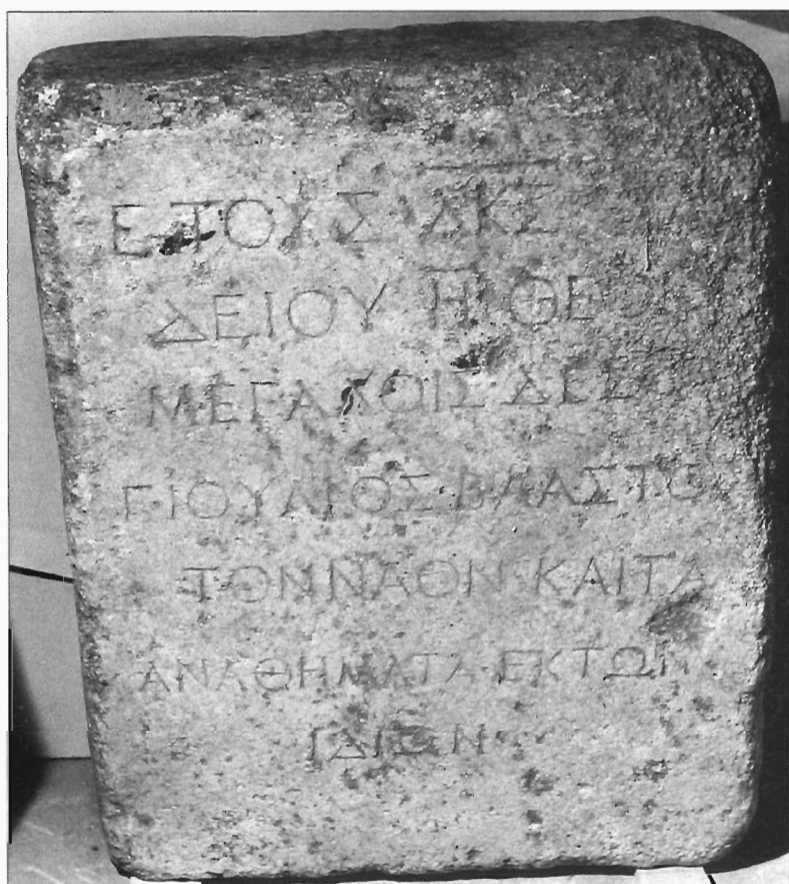 ΕΤΟΥΣ ΔΚΣ
ΔΕΙΟΥ Η ΘΕΟΙΣ
ΜΕΓΑΛΟΙΣ
Γ ΙΟΥΛΙΟΣ ΒΛΑΣΤΟ
ΤΟΝ ΝΑΟΝ ΚΑΙ ΤΑ
ΑΝΑΘΗΜΑΤΑ ΕΚ ΤΩΝ
ΙΔΙΩΝ